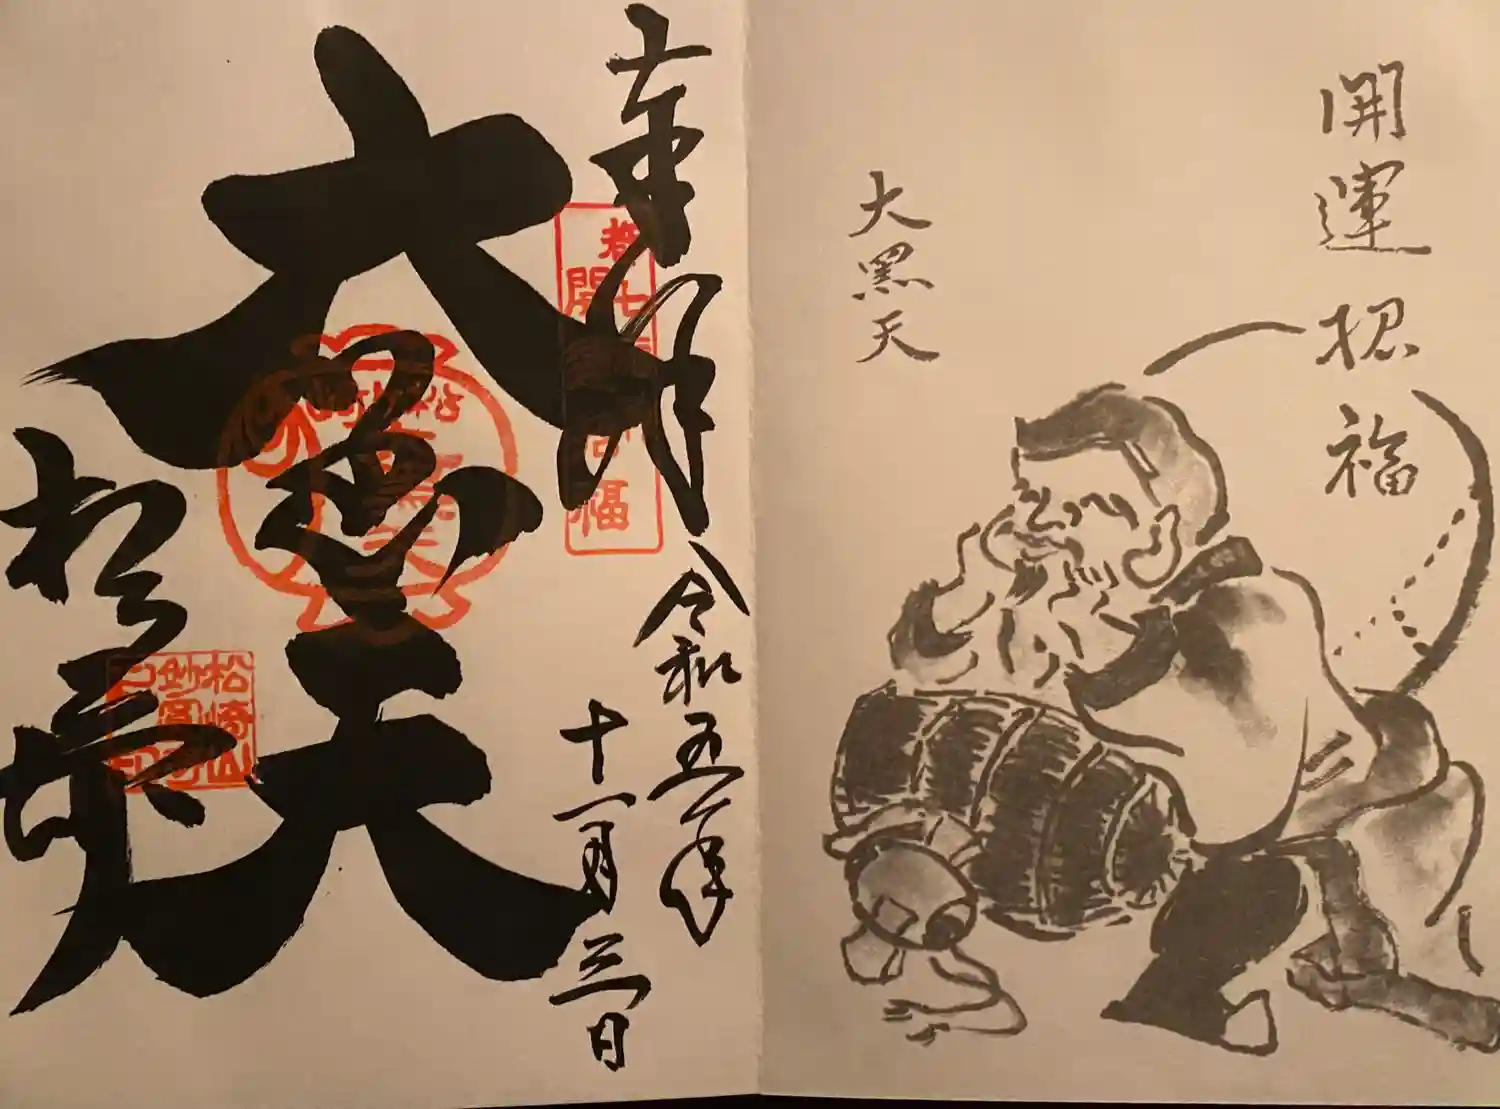 開運招福
大黒天
奉拝
令和五年
十一月三日
大黒天
松ヶ崎
松崎山
妙円寺